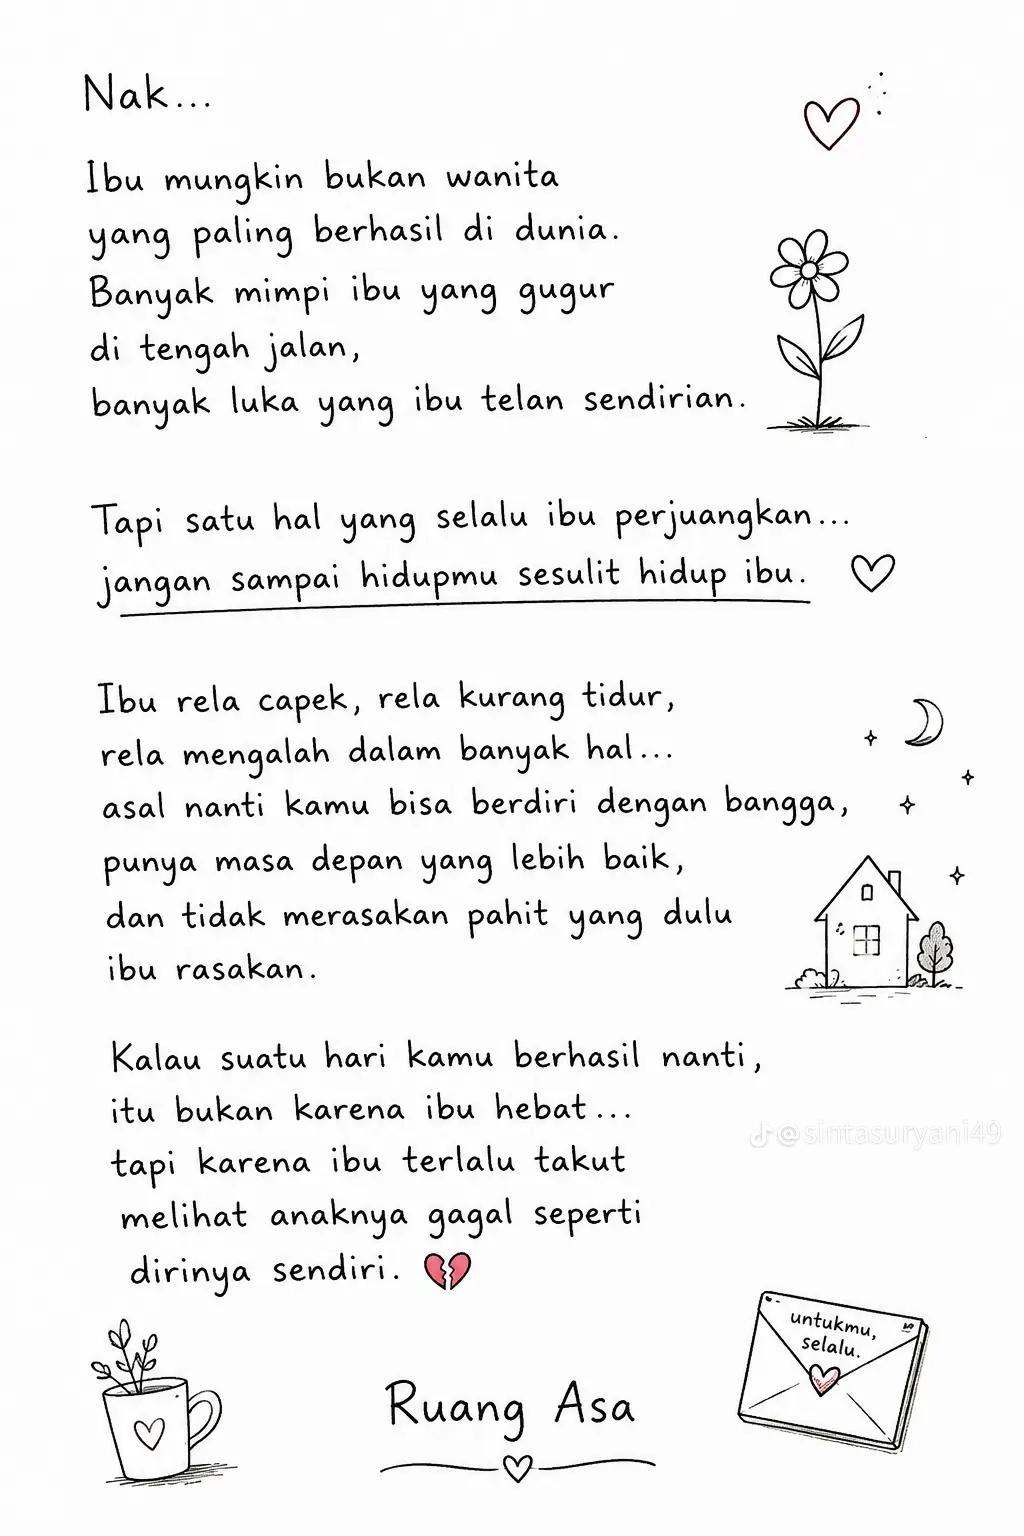 Nak...
Ibu mungkin bukan wanita
yang paling berhasil di dunia.
Banyak mimpi ibu yang gugur
di tengah jalan,
banyak luka yang ibu telan sendirian.
Tapi satu hal yang selalu ibu perjuangkan...
jangan sampai hidupmu sesulit hidup ibu.
Ibu rela capek, rela kurang tidur,
rela mengalah dalam banyak hal...
asal nanti kamu bisa berdiri dengan bangga,
punya masa depan yang lebih baik,
dan tidak merasakan pahit yang dulu
ibu rasakan.
Kalau suatu hari kamu berhasil nanti,
itu bukan karena ibu hebat...
@sintasuryani49
tapi karena ibu terlalu takut
melihat anaknya gagal seperti
dirinya sendiri. 💔
untukmu,
selalu.
Ruang Asa